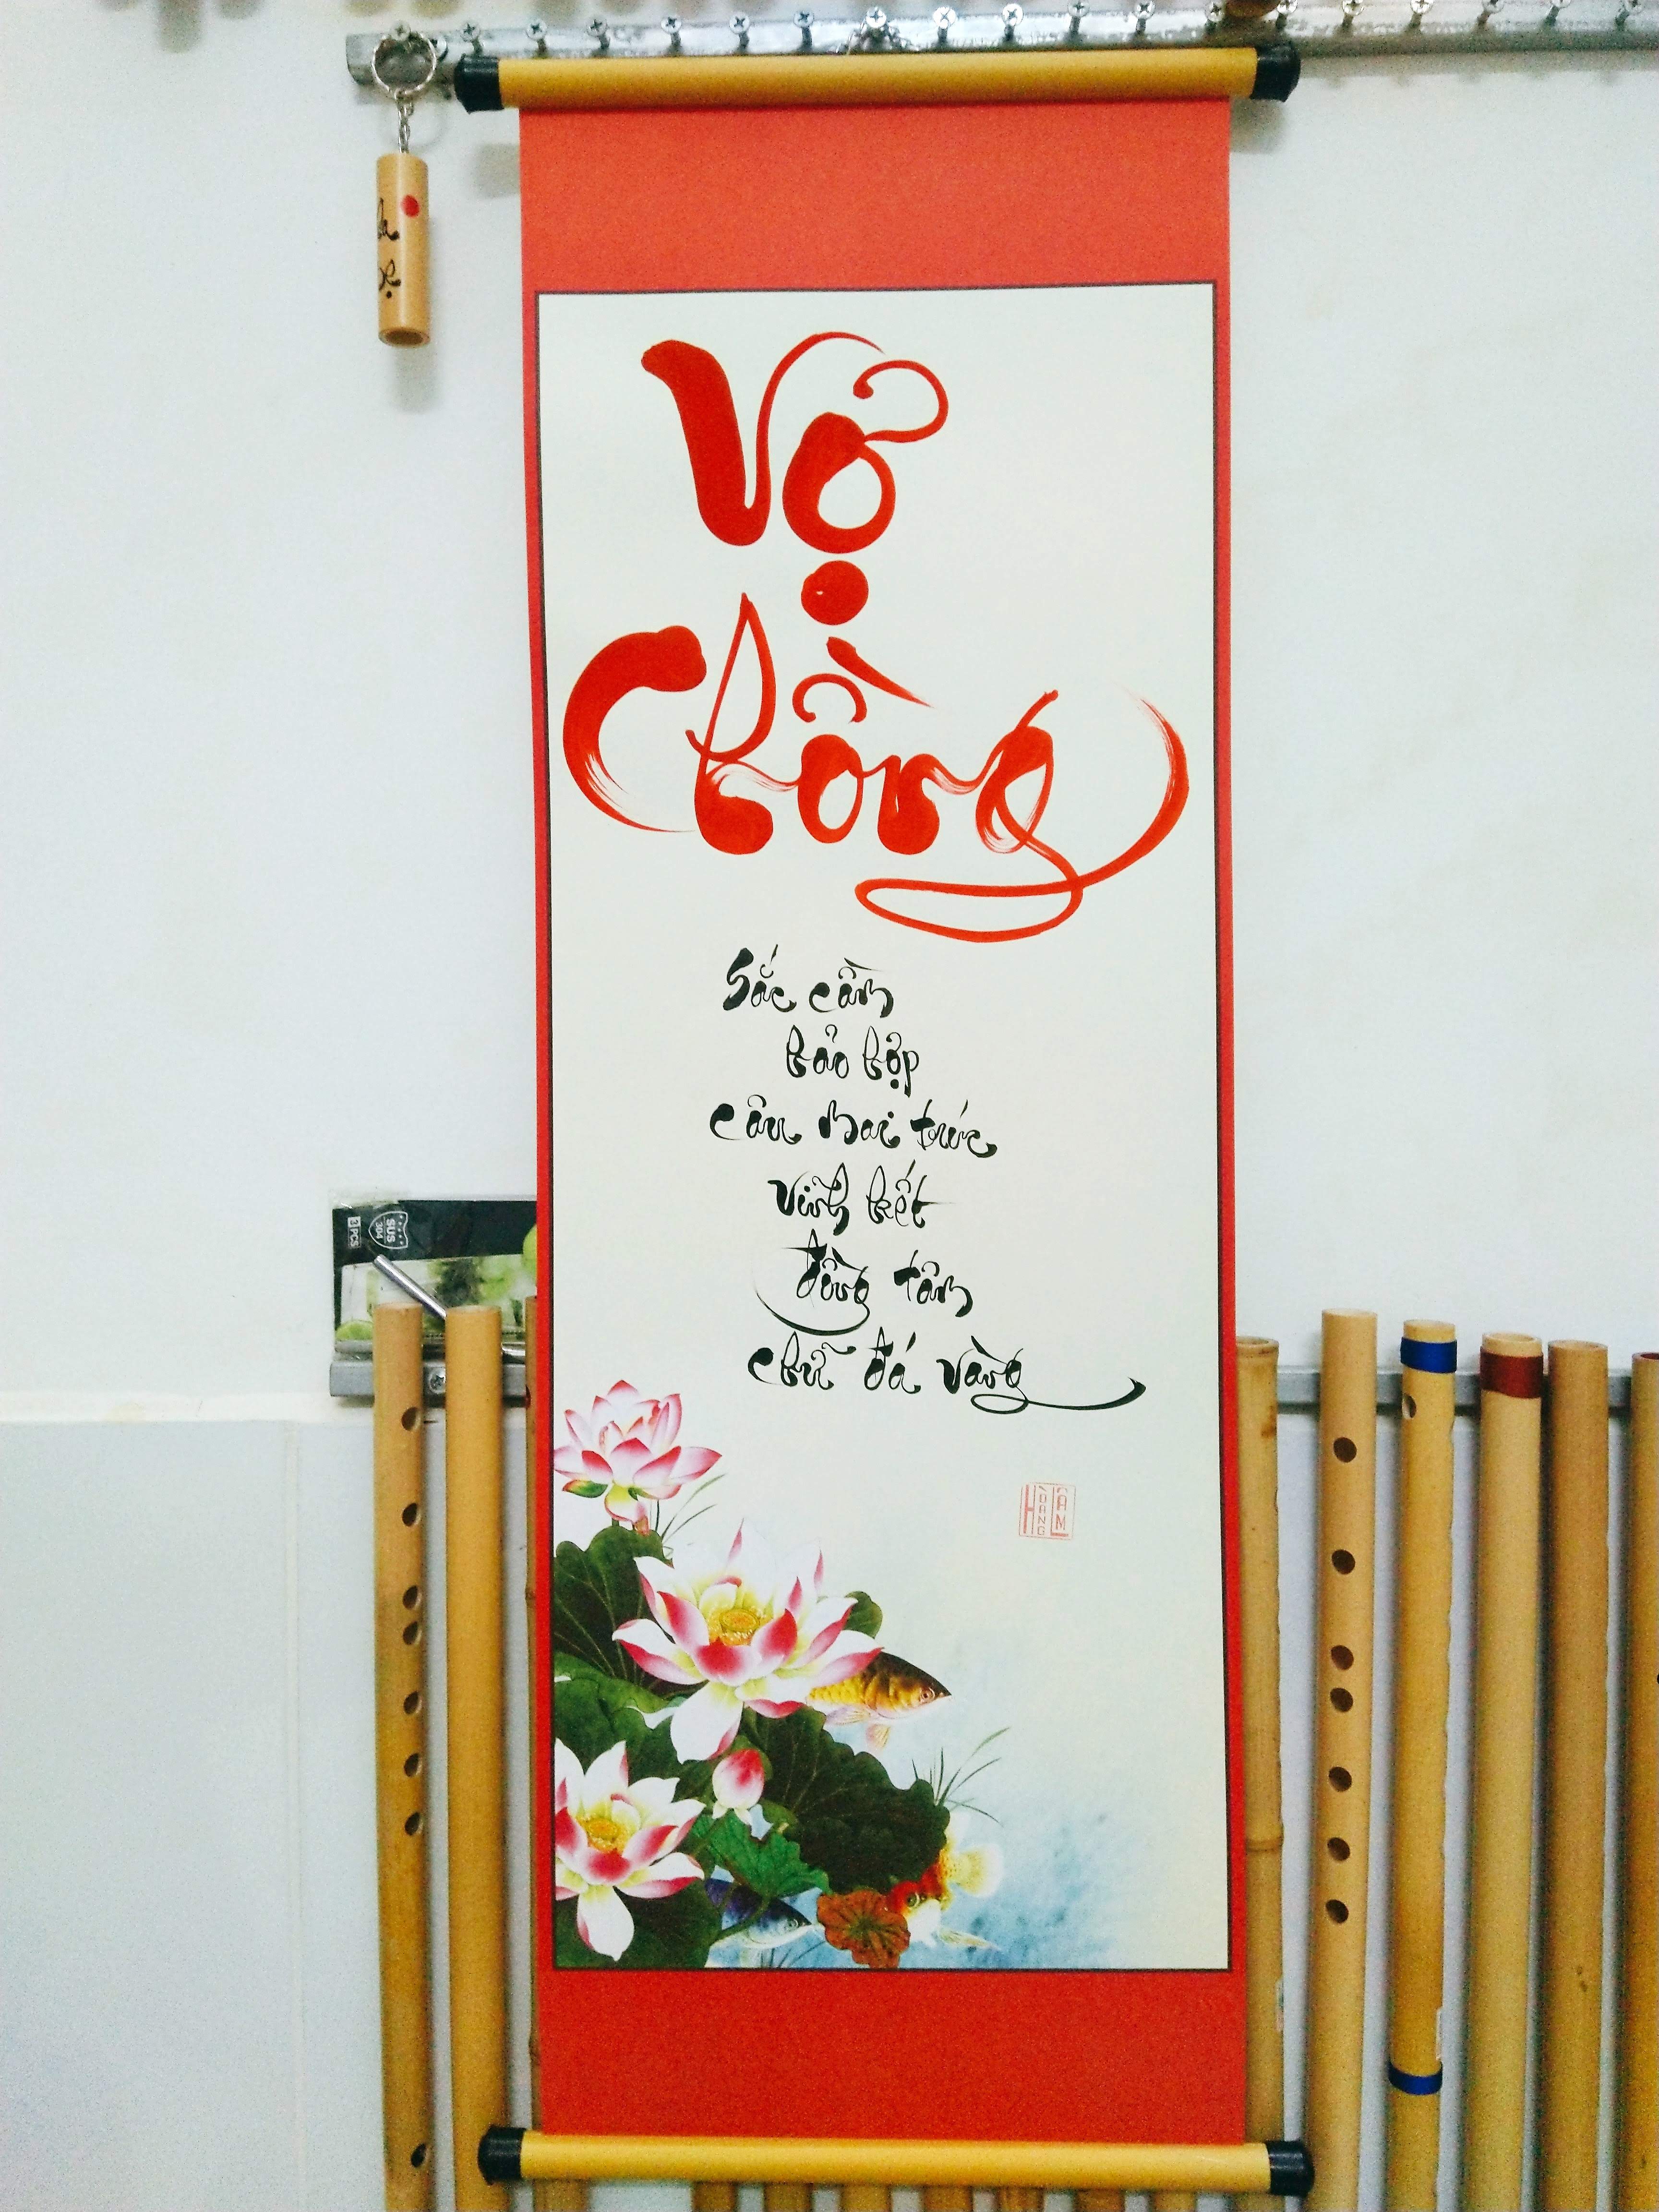 Vợ
Chồng
Sắc cầm
hảo hợp
câu mai trúc
Vĩnh kết
đồng tâm
chữ đá vàng
HOÀNG LÂM
SUS
304
2 PCS